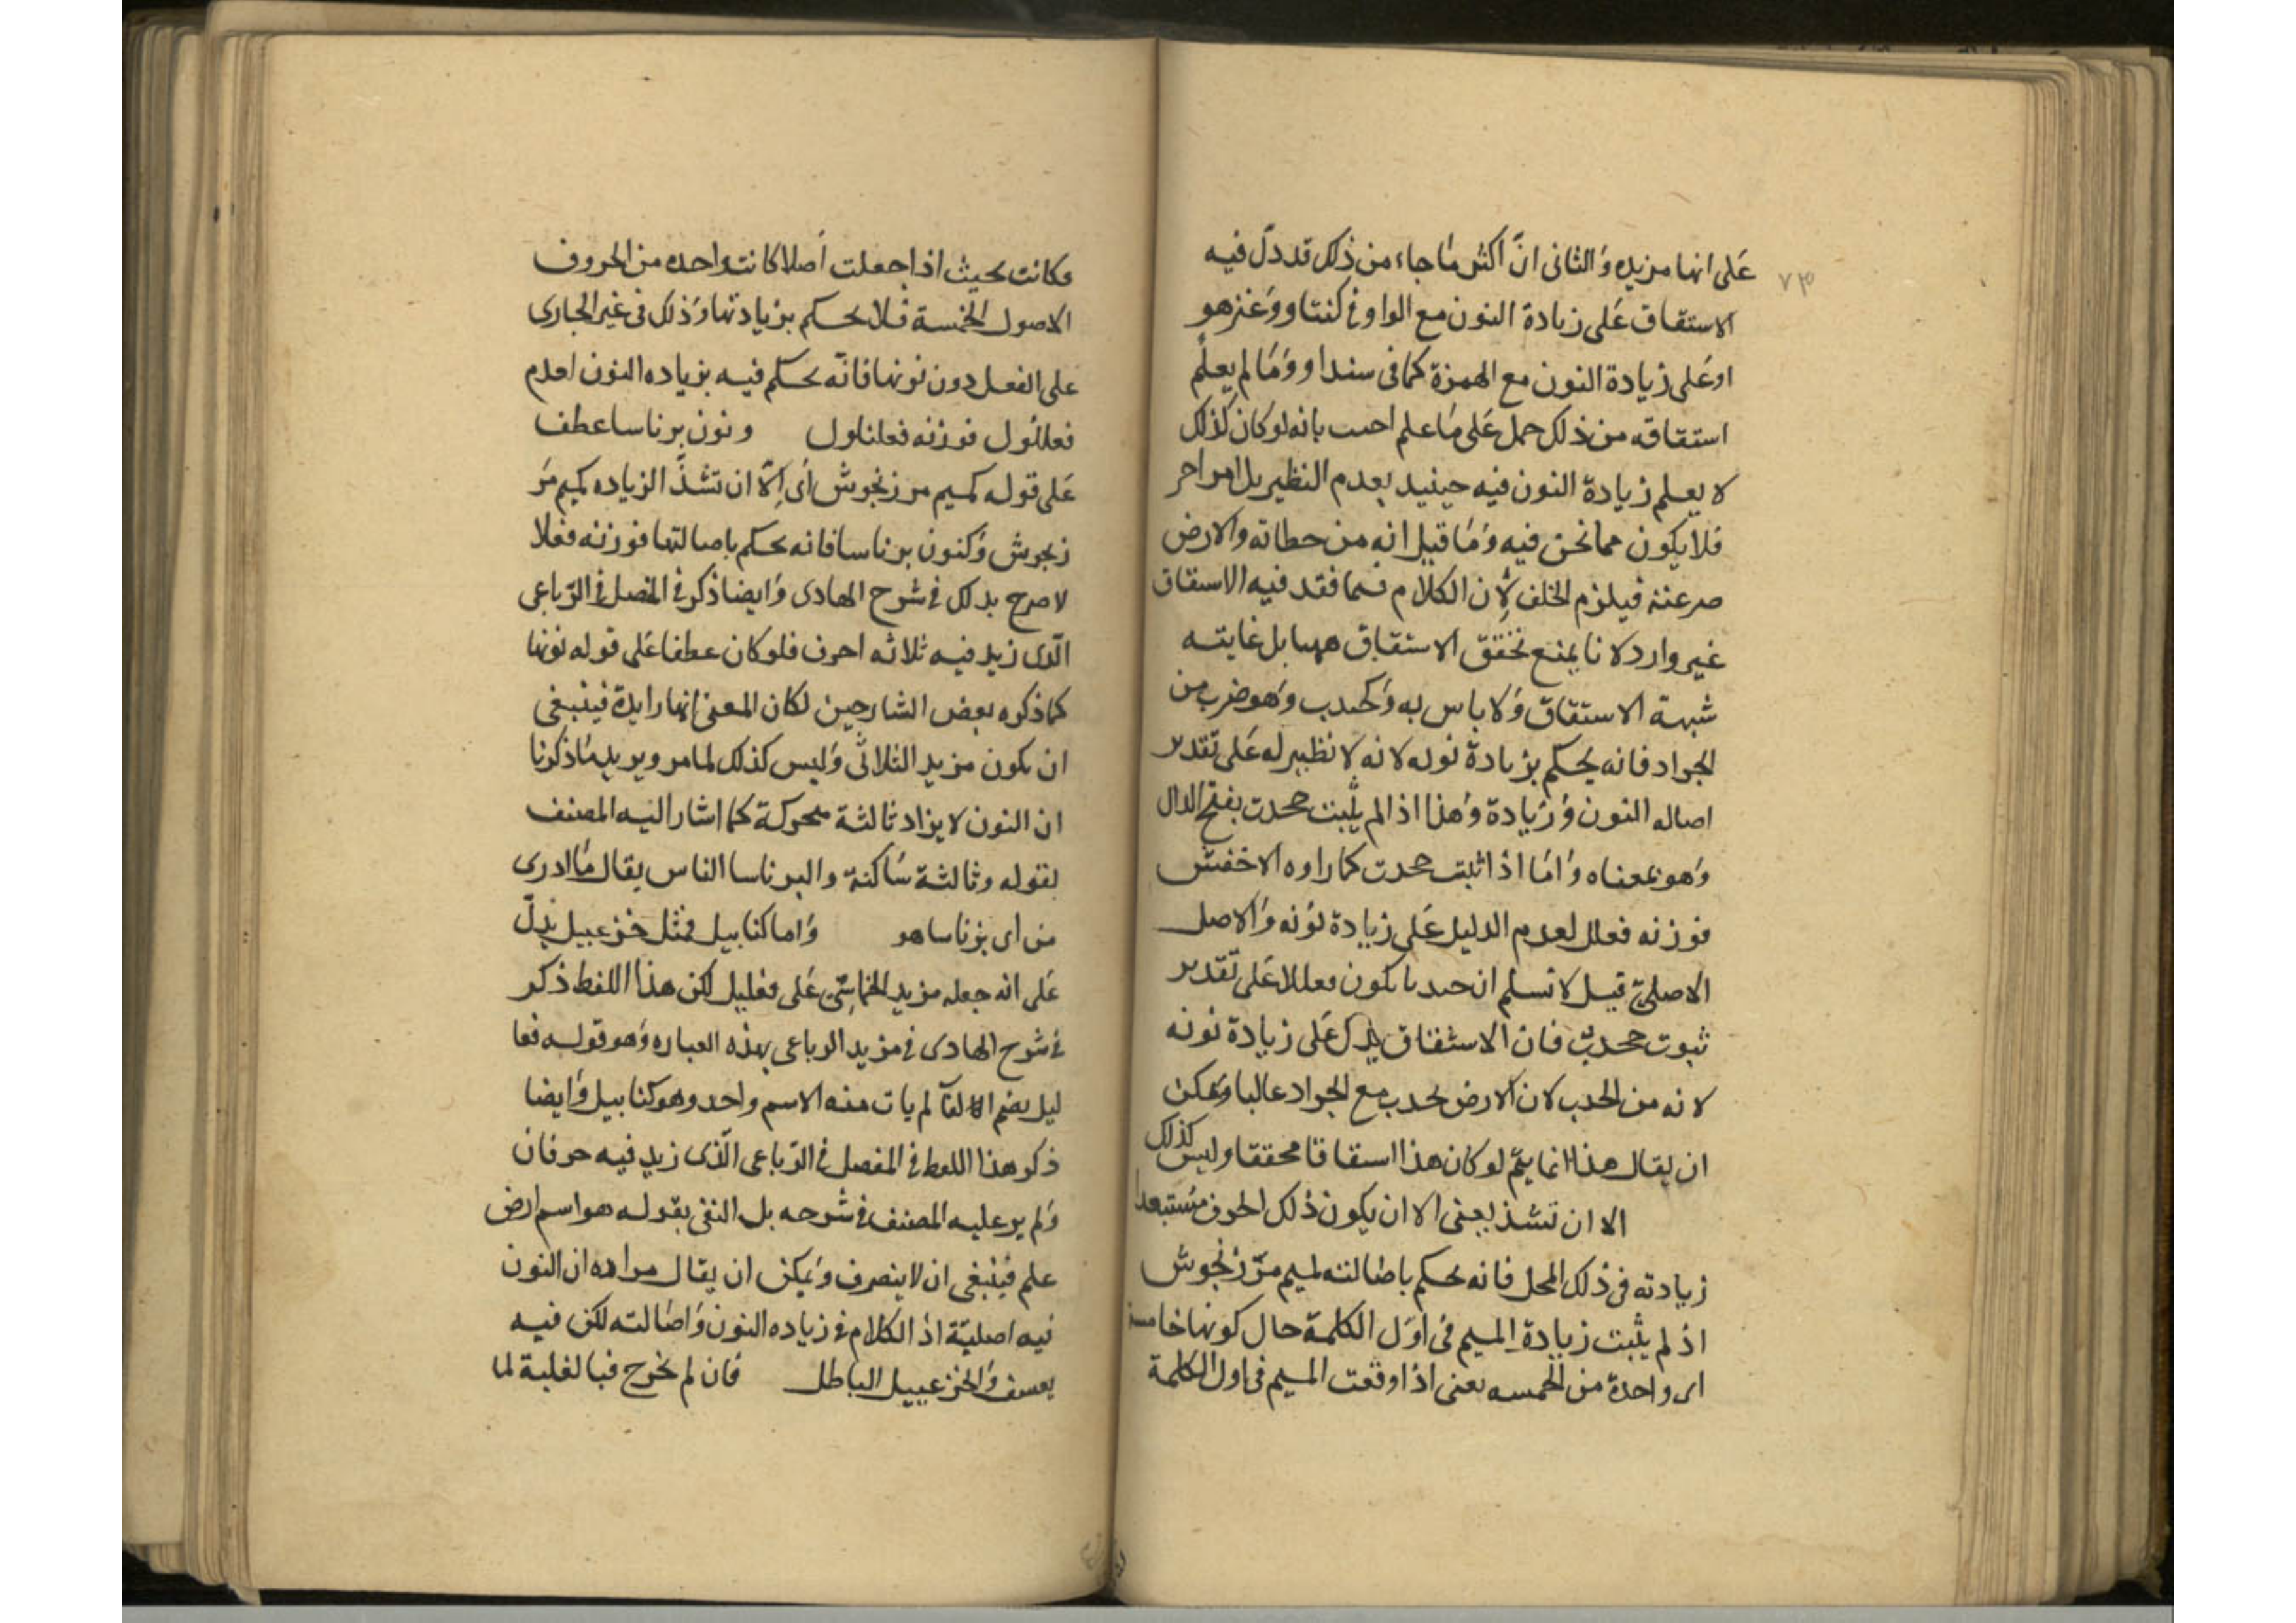 ٧٣
على انها مزيده والثانى انّ أكثر ما جاء من ذلك قد دلّ فيه
الاستقاق على زيادة النون مع الواو فى كنتاو وعنزهو
او على زيادة النون مع الهمزة كما فى سنداو وما لم يعلم
استقاقه من ذلك حمل على ما علم احىب بانه لو كان كذلك
لا يعلم زيادة النون فيه حينيد بعدم النظير بل امر احر
فلا يكون مما نحن فيه وما قيل انه من حطاته والارض
صرعته فيلزم الخلف لان الكلام فىما فقد فيه الاسقاق
غير وارد لانا يمنع تحقق الاستقاق ههىا بل غايته
شبهة الاستقاق ولا باس به وكحىدب وهو ضرب من
الجراد فانه يحكم بزيادة نونه لانه لا نظير له على تقدىر
اصاله النون وزيادة وهذا اذا لم يثبت جحدب بفتح الدال
وهو بمعناه واما اذا ثبت جحدب كما رواه الاخفش
فوزنه فعلل لعدم الدليل على زيادة نونه والاصل
الاصلىّ قيل لا نسلم ان حىدبا يكون فعللا على تقدىر
ثبوت جحدب فان الاستقاق يدل على زيادة نونه
لانه من الحدب لان الارض تحدب مع الجراد غالبا ويمكن
ان يقال هذا انما يتمّ لو كان هذا استقاقا محققا وليس كذلك
الا ان تشذ يعنى الا ان يكون ذلك الحرف مستبعدا
زيادته فى ذلك المحل فانه يحكم باصالته لميم مرّزنجوش
اذ لم يثبت زيادة الميم فى اوّل الكلمة حال كونها خامسة
اى واحدة من الخمسه يعنى اذا وقعت الميم فى اول الكلمة
وكانت بحيث اذا جعلت أصلا كانت واحده من الحروف
الاصول الخمسة فلا يحكم بزيادتها وذلك فى غير الجارى
على الفعل دون نونها فانّه يحكم فيه بزياده النون لعدم
فعلنلول فوزنه فعلناول ونون برناسا عطف
على قوله كميم مرزنجوش أى إلّا ان تشذّ الزياده كميم مر
زنجوش وكنون برناسا فانه يحكم باصالتها فوزنه فعلا
لا صرح بذلك فى شرح الهادى وايضا ذكر فى المفصل فى الرّباعى
الّذى زيد فيه ثلاثه احرف فلو كان عطفا على قوله نونها
كما ذكره بعض الشارحين لكان المعنى انها زايدة فينبغى
ان يكون مزيد الثلاثّى وليس كذلك لما مر ويريد ما ذكرنا
ان النون لا يزاد ثالثة متحركة كما اشار اليه المصنف
بقوله وثالثة ساكنة والبرناسا الناس يقال ما ادرى
من اى برناسا هو واما كنابيل فمثل خزعبيل يدلّ
على انه جعله مزيد الخماسىّ على فعليل لكن هذا اللفظ ذكر
فى شرح الهادى فى مزيد الرباعى بهذه العباره وهو قوله فعا
ليل بضم الفا لم يات منه الا اسم واحد وهو كنابيل وايضا
ذكر هذا اللفظ فى المفصل فى الرّباعى الّذى زيد فيه حرفان
ولم يرد عليه المصنف فى شرحه بل النفى بقوله هو اسم ارض
علم فينبغى ان لا ينصرف ويمكن ان يقال مراده ان النون
فيه اصليّة اذ الكلام فى زياده النون واصالته لكن فيه
يعسف والخزعبيل الباطل فان لم تخرج فبالغلبة لما